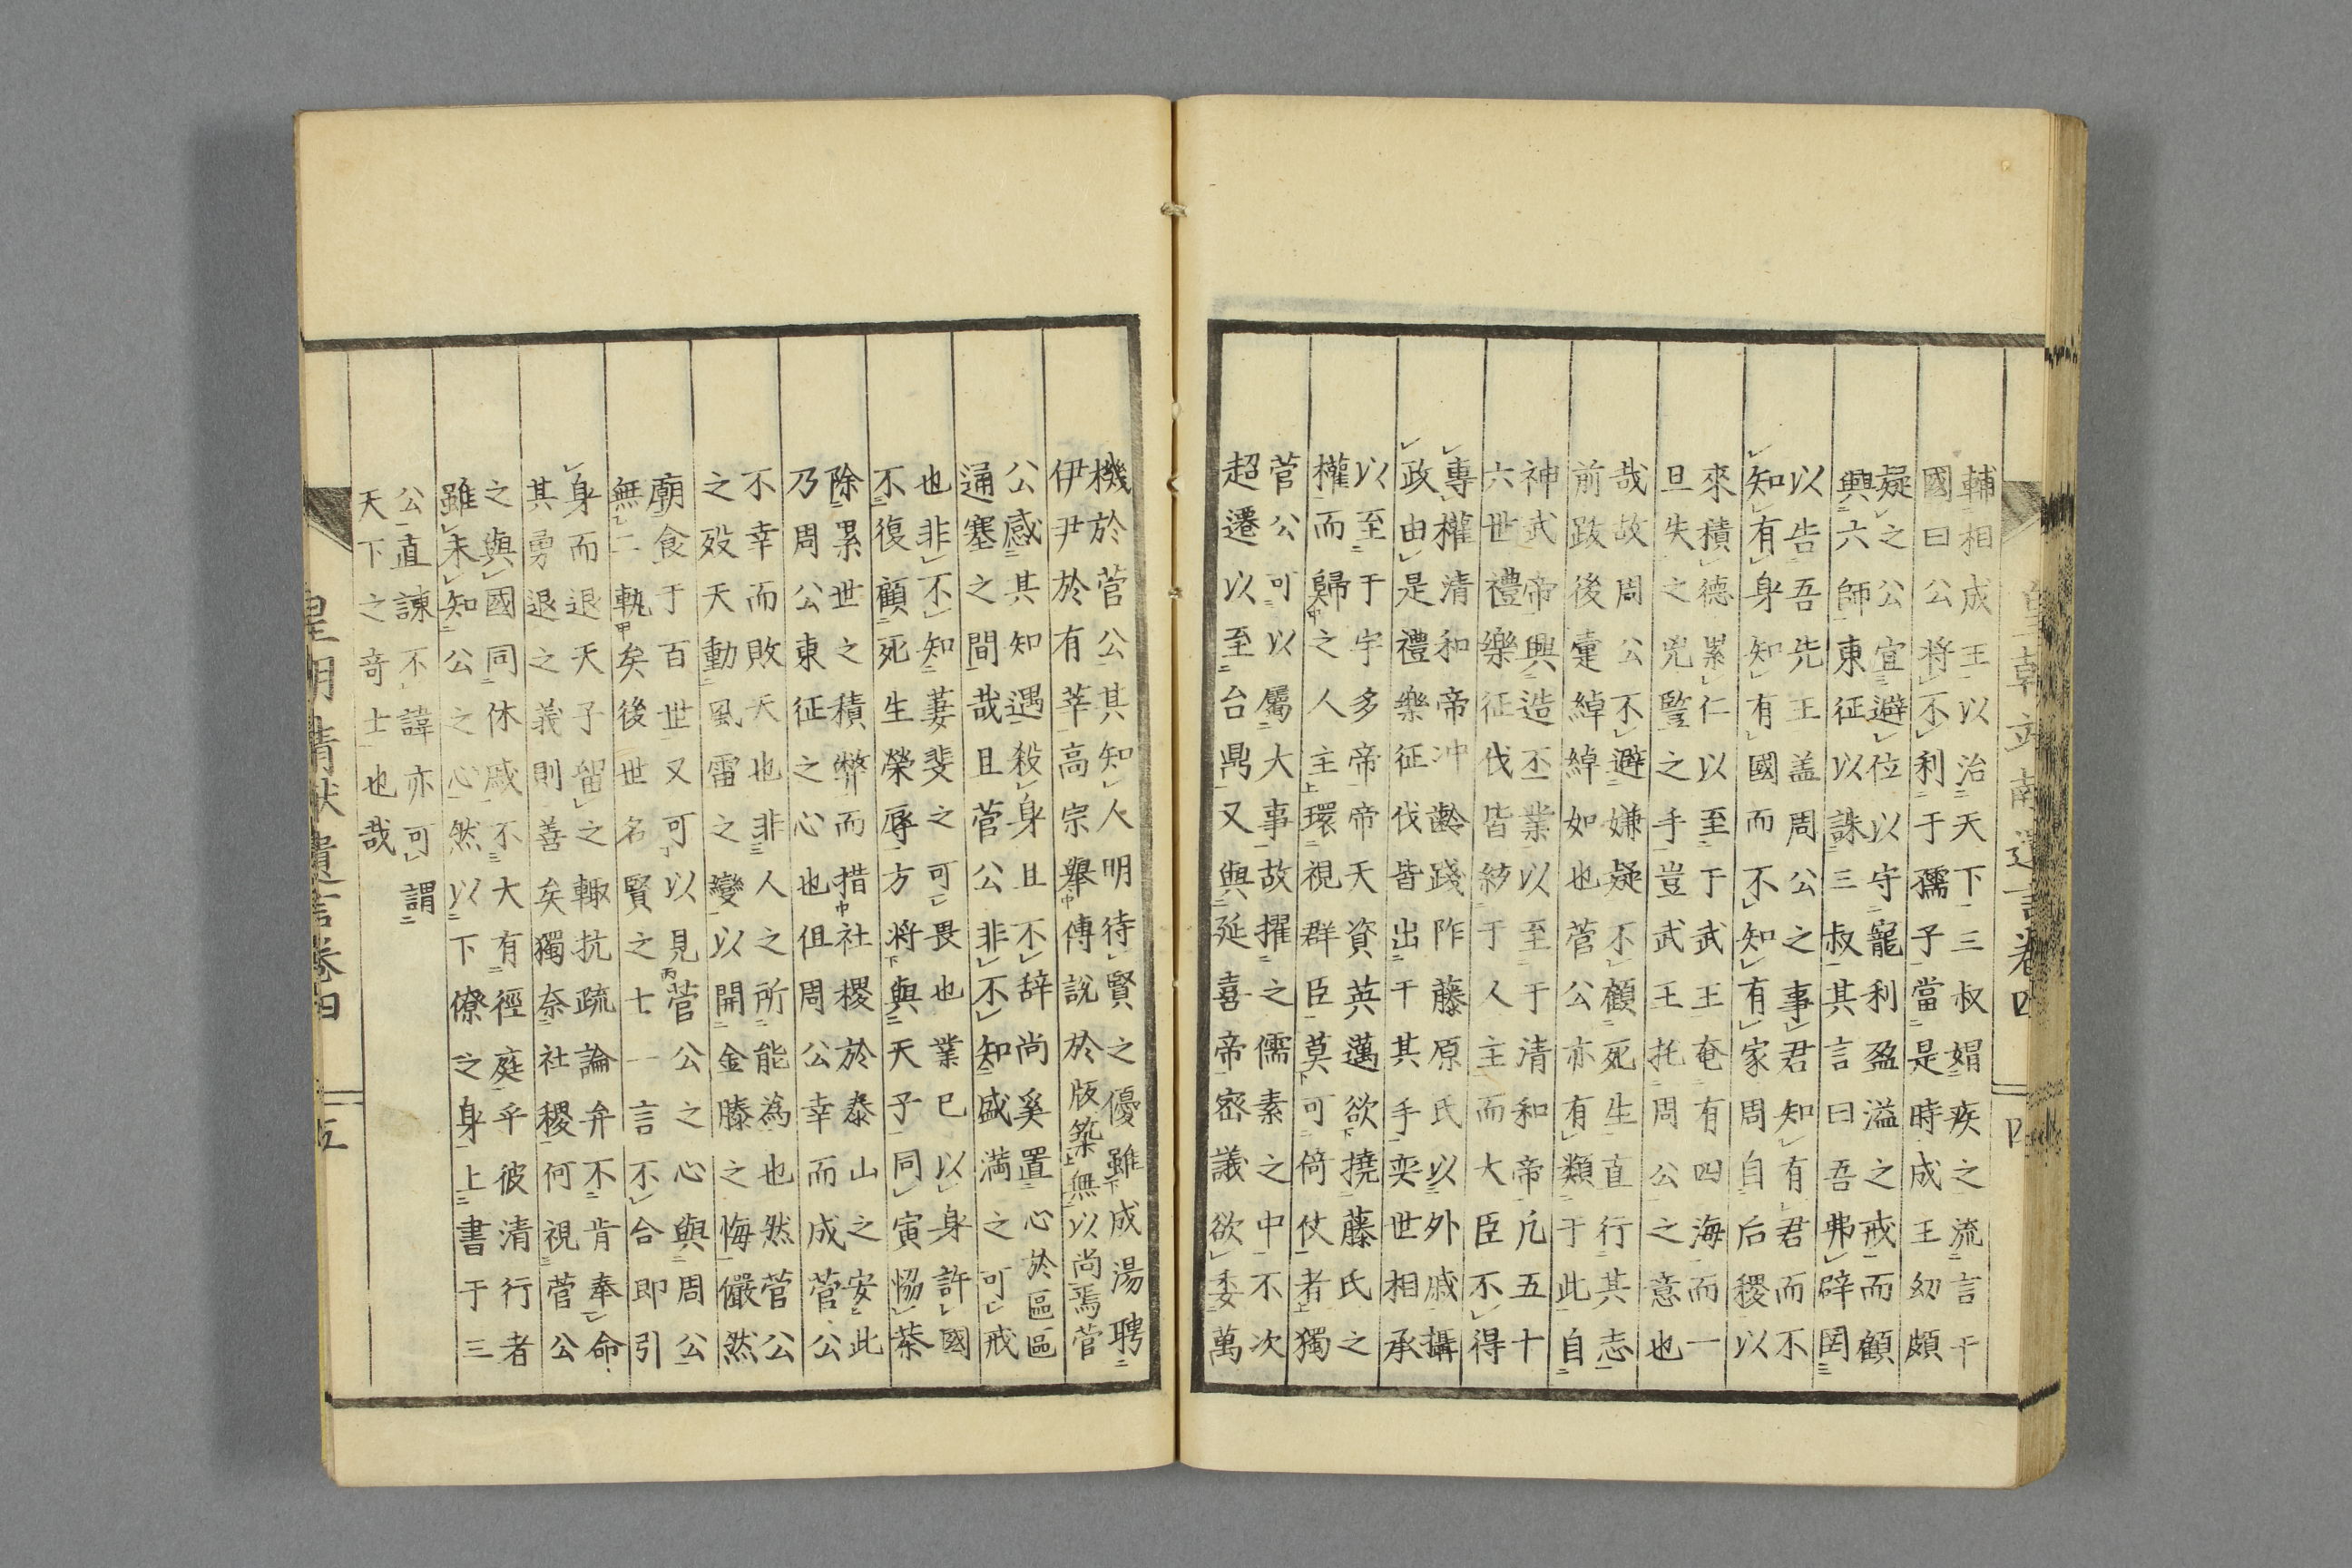 輔相成王以治天下三叔媢疾之流言干
國曰公將不利于孺子當是時成王幼頗
疑之公宜避位以守寵利盈溢之戒而顧
興六師東征以誅三叔其言曰吾弗辟罔
以告吾先王盖周公之事君知有君而不
知有身知有國而不知有家周自后稷以
來積德累仁以至于武王奄有四海而一
旦失之兇豎之手豈武王托周公之意也
哉故周公不避嫌疑不顧死生直行其志
前跋後疐綽綽如也菅公亦有類于此自
神武帝興造丕業以至于清和帝凡五十
六世禮樂征伐皆于人主而大臣不得
專權清和帝冲齡踐阼藤原氏以外戚攝
政由是禮樂征伐皆出干其手奕世相承
以至于宇多帝帝天資英邁欲撓藤氏之
權而歸之人主環視群臣莫可倚仗者獨
菅公可以屬大事故擢之儒素之中不次
超遷以至台鼎又與延喜帝密議欲委萬
機於菅公其知人明待賢之優雖成湯聘
伊尹於有莘高宗舉傅說於版築無以尚焉菅
公感其知遇殺身且不辞尚奚置心於區區
通塞之間哉且菅公非不知盛満之可戒
也非不知萋斐之可畏也業已以身許國
不復顧死生榮辱方將與天子同寅恊恭
除累世之積弊而措社稷於泰山之安此
乃周公東征之心也但周公幸而成菅公
不幸而敗天也非人之所能為也然菅公
之歿天動風雷之變以開金縢之悔儼然
廟食于百世又可以見菅公之心與周公
無二軌矣後世名賢之士一言不合即引
身而退天子留之輙抗疏論弁不肯奉命
其勇退之義則善矣獨奈社稷何視菅公
之與國同休戚不大有徑庭乎彼清行者
雖未知公之心然以下僚之身上書于三
公直諫不諱亦可謂
天下之奇士也哉
皇明靖献遺言卷四
五